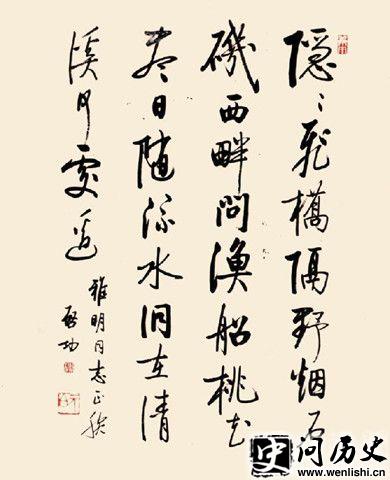 隱〻飛橋隔野烟石
磯西畔問漁船桃花
盡日隨流水洞在清
溪何處邊
雅明同志正腕
啓功
史
问历史
www.wenlishi.cn